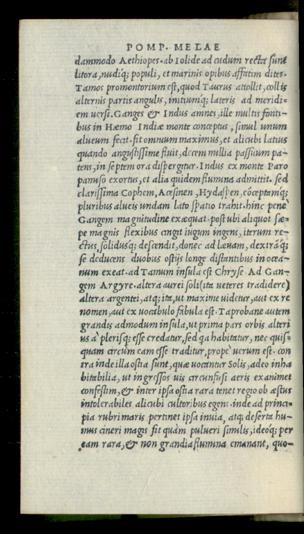 POMP. MELAE
dammodo Aethiopes. ab Iolide ad cudum recta sunt
litora, nudiq; populi, et marinis opibus affatim dites.
Tamos promontorium est, quod Taurus attollit, collis
alternis partis angulis, initiumq; lateris ad meridi-
em uersi. Ganges & Indus amnes, ille multis fonti-
bus in Hæmo Indiæ monte conceptus, simul unum
alueum fecit. fit omnium maximus, et alicubi latius
quando angustissime fluit, decem millia passuum pa-
tens, in septem ora dispergitur. Indus ex monte Paro
panuso exortus, et alia quidem flumina admittit. sed
clarissima Cophem, Acesinen, Hydaspen, cōceptamq;
pluribus alueis undam lato spatio trahit. hinc pene
Gangem magnitudine exæquat. post ubi aliquot sæ-
pe magnis flexibus cingit iugum ingens, iterum re-
ctus, solidusq; descendit, donec ad læuam, dextrāq;
se deducens duobus ostijs longe distantibus in ocea-
num exeat. ad Tamum insula est Chryse Ad Gan-
gem Argyre. altera aurei soli (ita ueteres tradidere)
altera argentei, atq; ita, ut maxime uidetur, aut ex re
nomen, aut ex uocabulo fabula est. Taprobane autem
grandis admodum insula, ut prima pars orbis alteri
us a plerisq; esse credatur, sed qa habitatur, nec quis-
quam circum eam isse traditur, prope uerum est. con
tra inde illa ostia sunt, quæ uocantur Solis, adeo inha
bitabilia, ut ingressos uis circunfusi aeris exanimet
confestim, & inter ipsa ostia rara tenet regio ob æstus
intolerabiles alicubi cultoribus egens. inde ad princi-
pia rubri maris pertinet ipsa inuia, atq; deserta hu-
mus cineri magis fit quàm pulueri similis, ideoq; per
eam rara, & non grandia flumina emanant, quo-